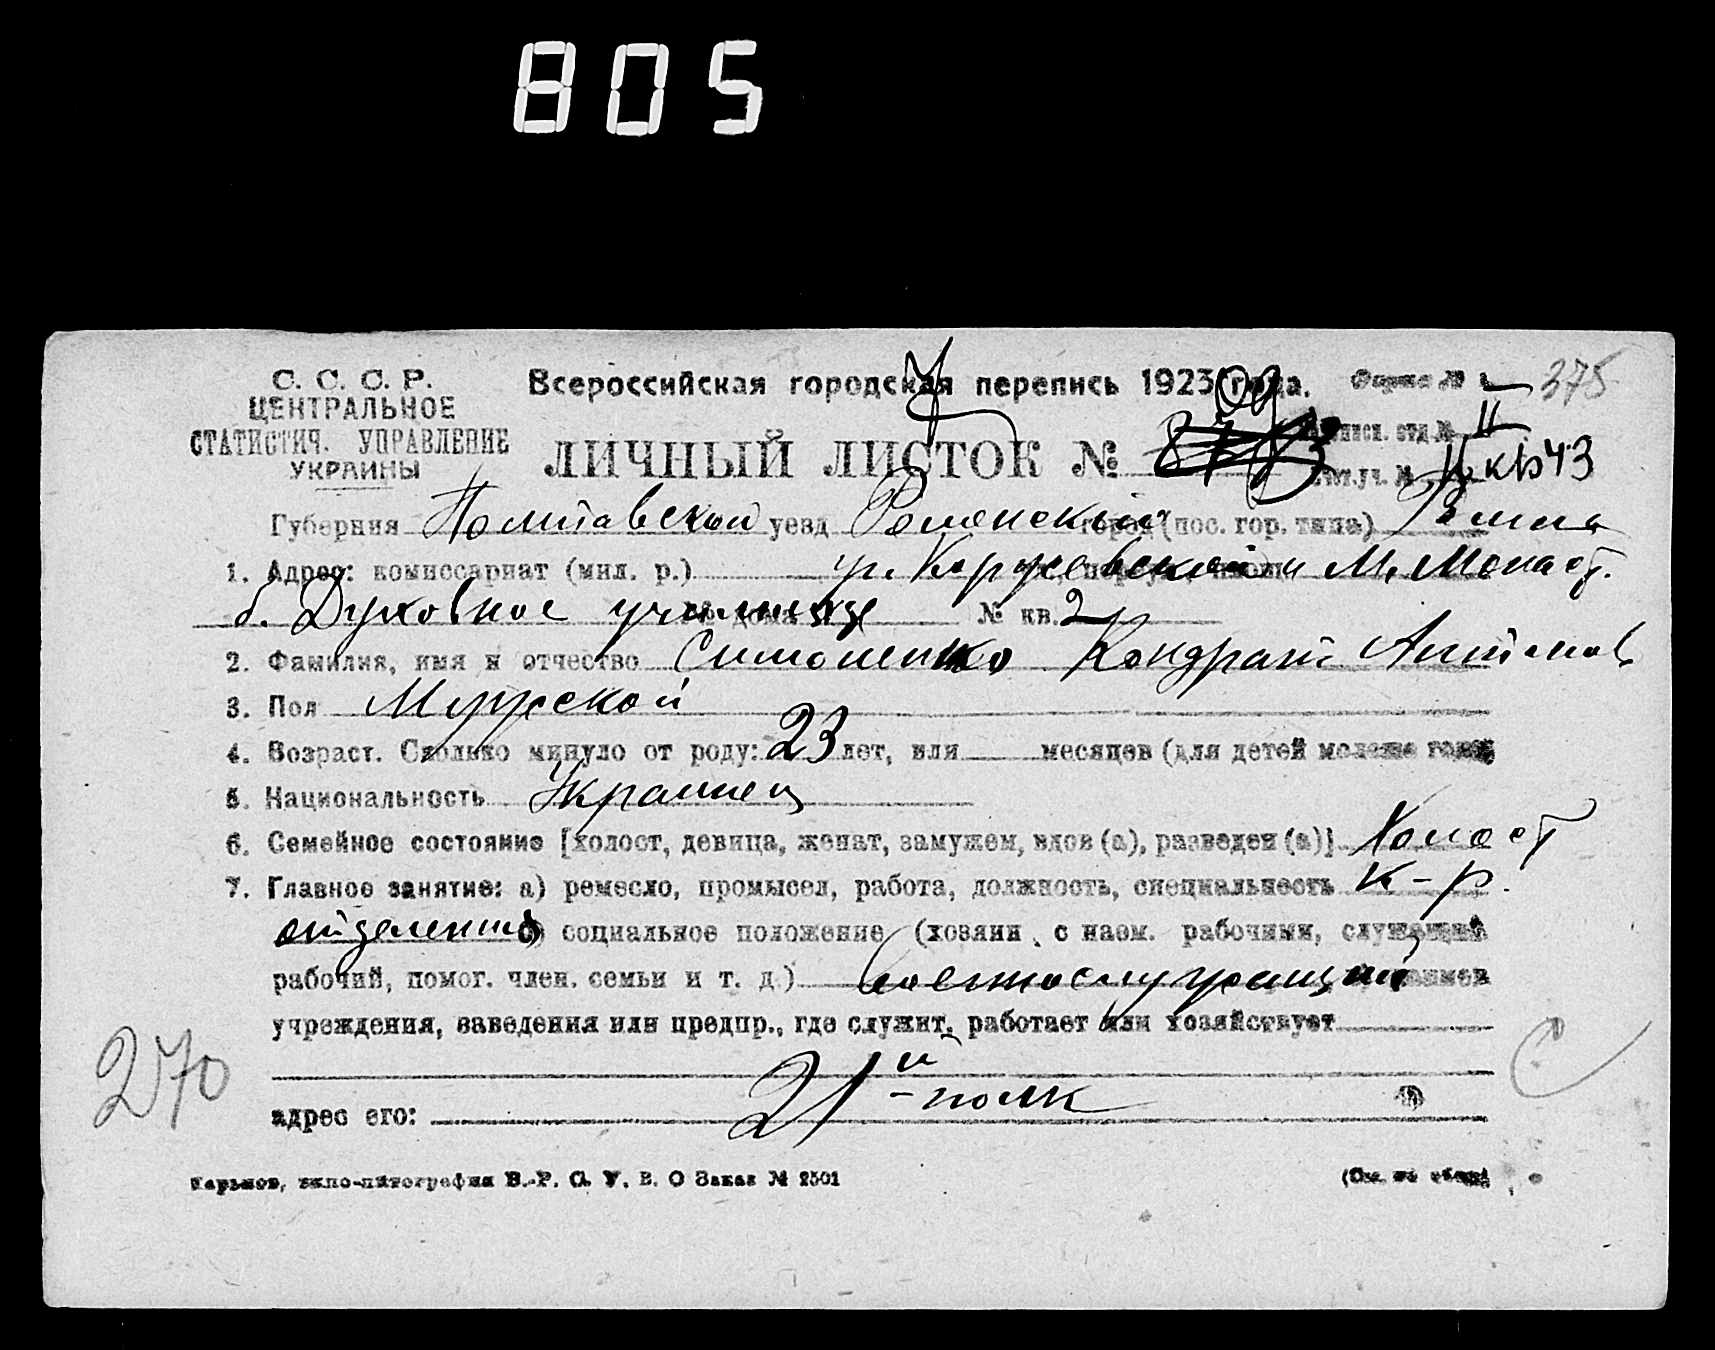 805
С. С. С. Р.
ЦЕНТРАЛЬНОЕ
СТАТИСТИЧ. УПРАВЛЕНИЕ
УКРАИНЫ
Всероссийская городская перепись 1923 года.
Форма № 1
375
ЛИЧНЫЙ ЛИСТОК №
отд. № II
уч. № кв 43
Губерния Полтавской уезд Роменский город (пос. гор. типа) Ромны
1. Адрес: комиссариат (мил. р.) уг. и М. Монаст.
б. Духовное училище № дома № кв. 2
2. Фамилия, имя и отчество Симоненко Кондрат Антонов
3. Пол Мужской
4. Возраст. Сколько минуло от роду: 23 лет, или месяцев (для детей моложе года)
5. Национальность Украинец
6. Семейное состояние [холост, девица, женат, замужем, вдов (а), разведен (а)] Холост
7. Главное занятие: а) ремесло, промысел, работа, должность, специальность к-р.
отделения социальное положение (хозяин с наем. рабочими, служащий
рабочий, помог. член. семьи и т. д.) военнослужащий
учреждения, заведения или предпр., где служит, работает или хозяйствует
270
21й - полк
адрес его:
Харьков, типо-литография В.-Р. С. У. В. О Заказ № 2501
(См. на обор.)